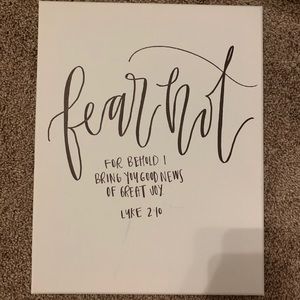 fear not
FOR BEHOLD I
BRING YOU GOOD NEWS
OF GREAT JOY
LUKE 2:10